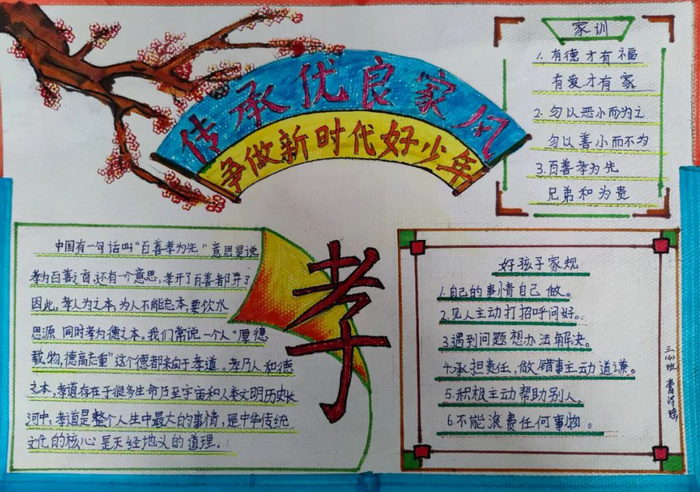 传承优良家风
争做新时代好少年
家训
1. 有德才有福
有爱才有家
2. 勿以恶小而为之
勿以善小而不为
3. 百善孝为先
兄弟和为贵
中国有一句话叫“百善孝为先”意思是说
孝为百善之首,还有一个意思,孝开了百善都开了
因此,孝人为之本,为人不能忘本,要饮水
思源 同时孝为德之本,我们常说一个人“厚德
载物,德高志重”这个德都来自于孝道,孝乃人和德
之本,孝道存在于很多生命乃至宇宙和人类文明历史长
河中,孝道是整个人生中最大的事情,是中华传统
文化的核心是天经地义的道理。
孝
好孩子家规
1.自己的事情自己做。
2.见人主动打招呼问好。
3.遇到问题想办法解决。
4.承担责任,做错事主动道谦。
5.积极主动帮助别人。
6.不能浪费任何事物。
三(4)班